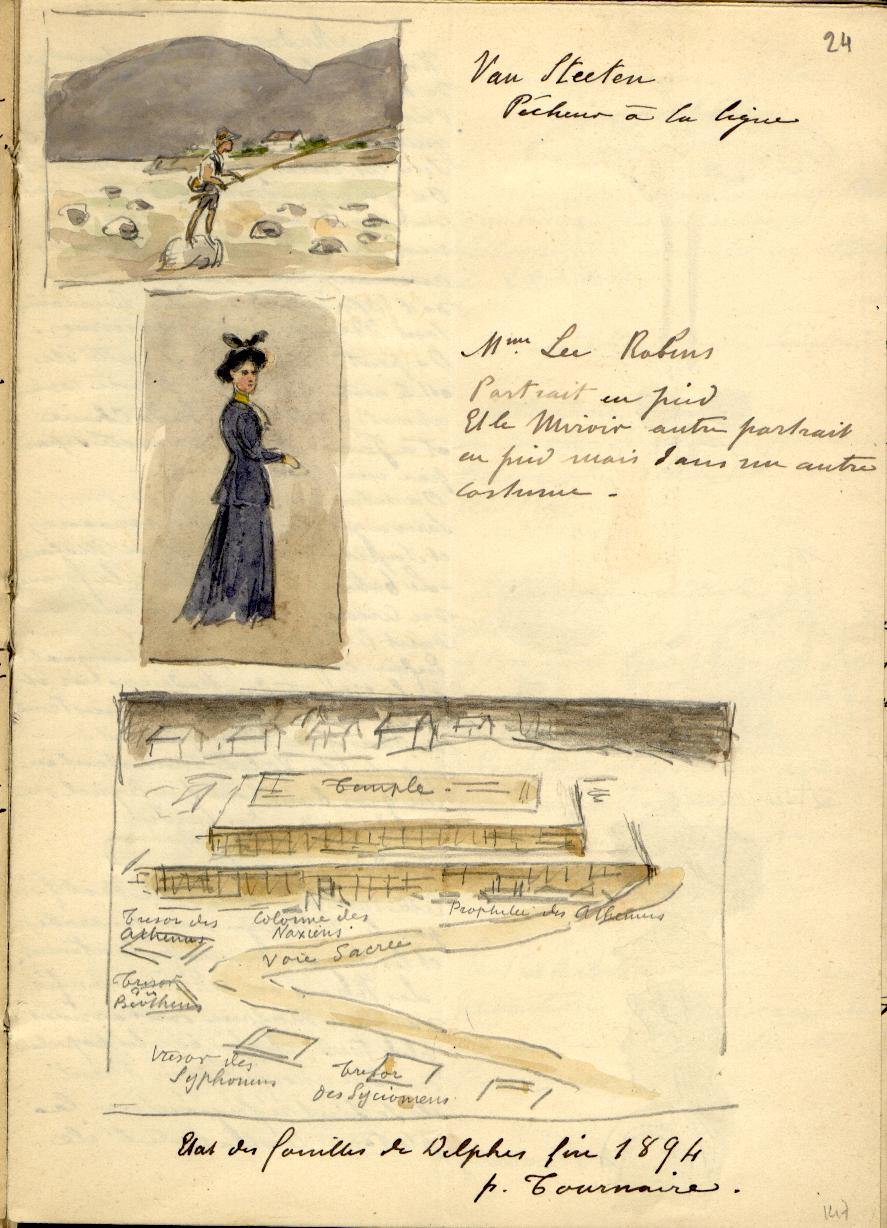 24
Van Steeten
Pêcheur à la ligne
Mme Lee Robins
Portrait en pied
Et le Miroir autre portrait
en pied mais dans un autre
costume -
Temple
Tresor des
Athenens
Colonne des
Naxiens
Prophilee des Atheniens
Voie Sacree
Tresor
Beothens
Tresor des
Syphoniens
Tresor
des Syciomens
Etat des fouilles de Delphes fin 1894
p. Tournaire.